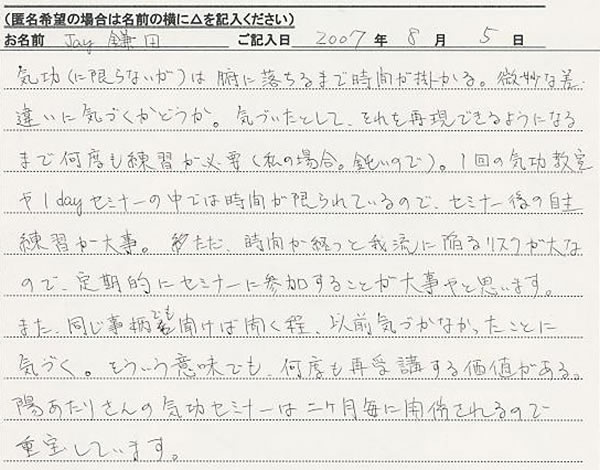 (匿名希望の場合は名前の横に△を記入ください)
お名前 Jay 鎌田 ご記入日 2007 年 8 月 5 日
気功(に限らないが)は腑に落ちるまで時間が掛かる。微妙な差・
違いに気づくかどうか。気づいたとして、それを再現できるようになる
まで何度も練習が必要(私の場合。鈍いので)。1回の気功教室
や1dayセミナーの中では時間が限られているので、セミナー後の自主
練習が大事。ただ、時間が経つと我流に陥るリスクが大な
ので、定期的にセミナーに参加することが大事やと思います。
また、同じ事柄でも聞けば聞く程、以前気づかなかったことに
気づく。そういう意味でも、何度も再受講する価値がある。
陽あたりさんの気功セミナーは二ケ月毎に開催されるので
重宝しています。